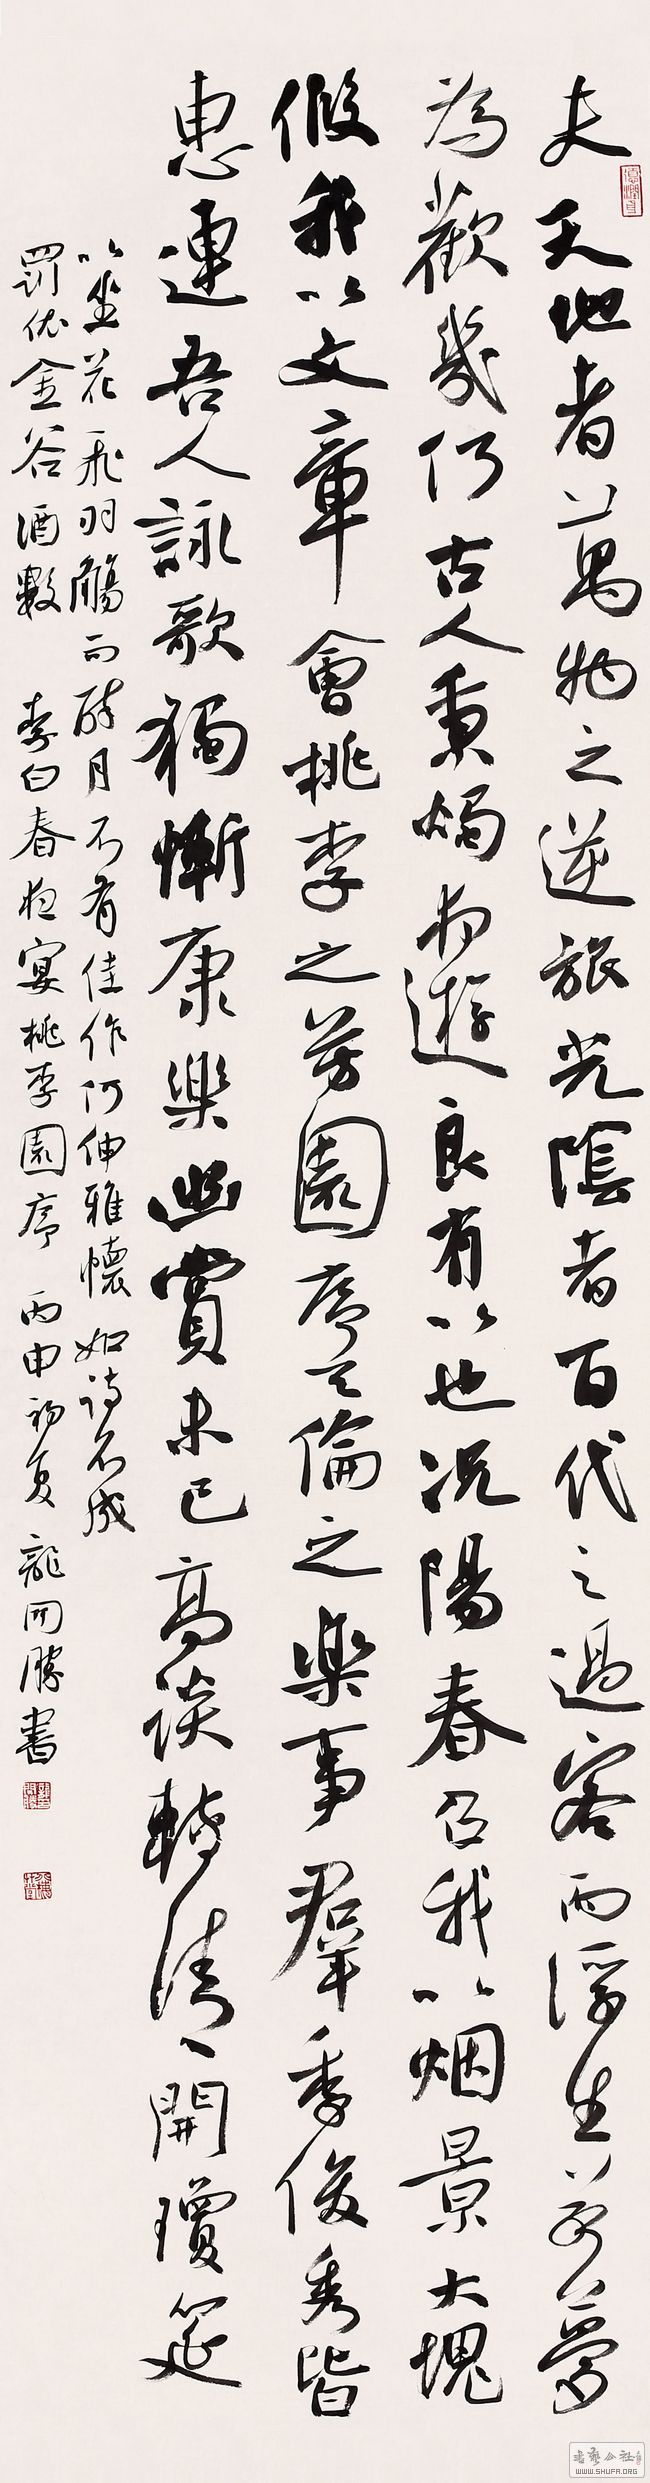 夫天地者萬物之逆旅光陰者百代之過客而浮生若夢
為歡幾何古人秉燭夜遊良有以也況陽春召我以烟景大塊
假我以文章會桃李之芳園序天倫之樂事羣季俊秀皆
惠連吾人詠歌獨慚康樂幽賞未已高談轉清開瓊筵
以坐花飛羽觴而醉月不有佳作何伸雅懷如詩不成
罰依金谷酒數 李白春夜宴桃李園序 丙申初夏 龍開勝書
書藝公社
WWW.SHUFA.ORG